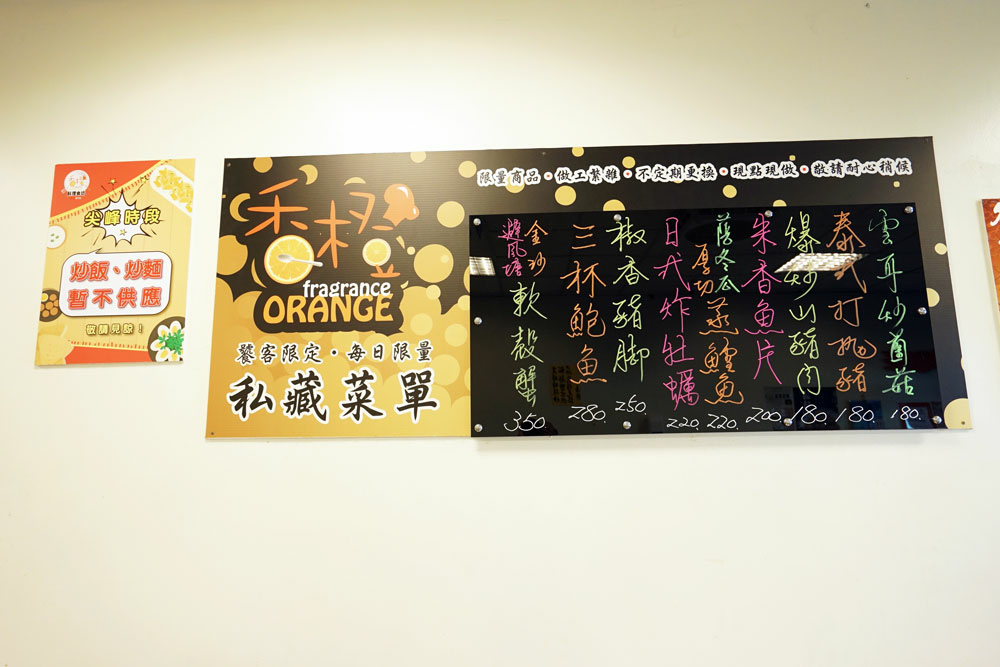 尖峰時段
炒飯、炒麵
暫不供應
敬請見諒！
香橙
fragrance
ORANGE
饕客限定・每日限量
私藏菜單
限量商品・做工繁雜・不定期更換・現點現做・敬請耐心稍候
雲耳炒菌菇 180.
泰式打拋豬 180.
爆炒山豬肉 180.
朱香魚片 200.
蔭冬瓜
厚切蒸鱈魚 220.
日式炸牡蠣 220.
椒香豬腳 250.
三杯鮑魚 280.
金沙
避風塘軟殼蟹 350.